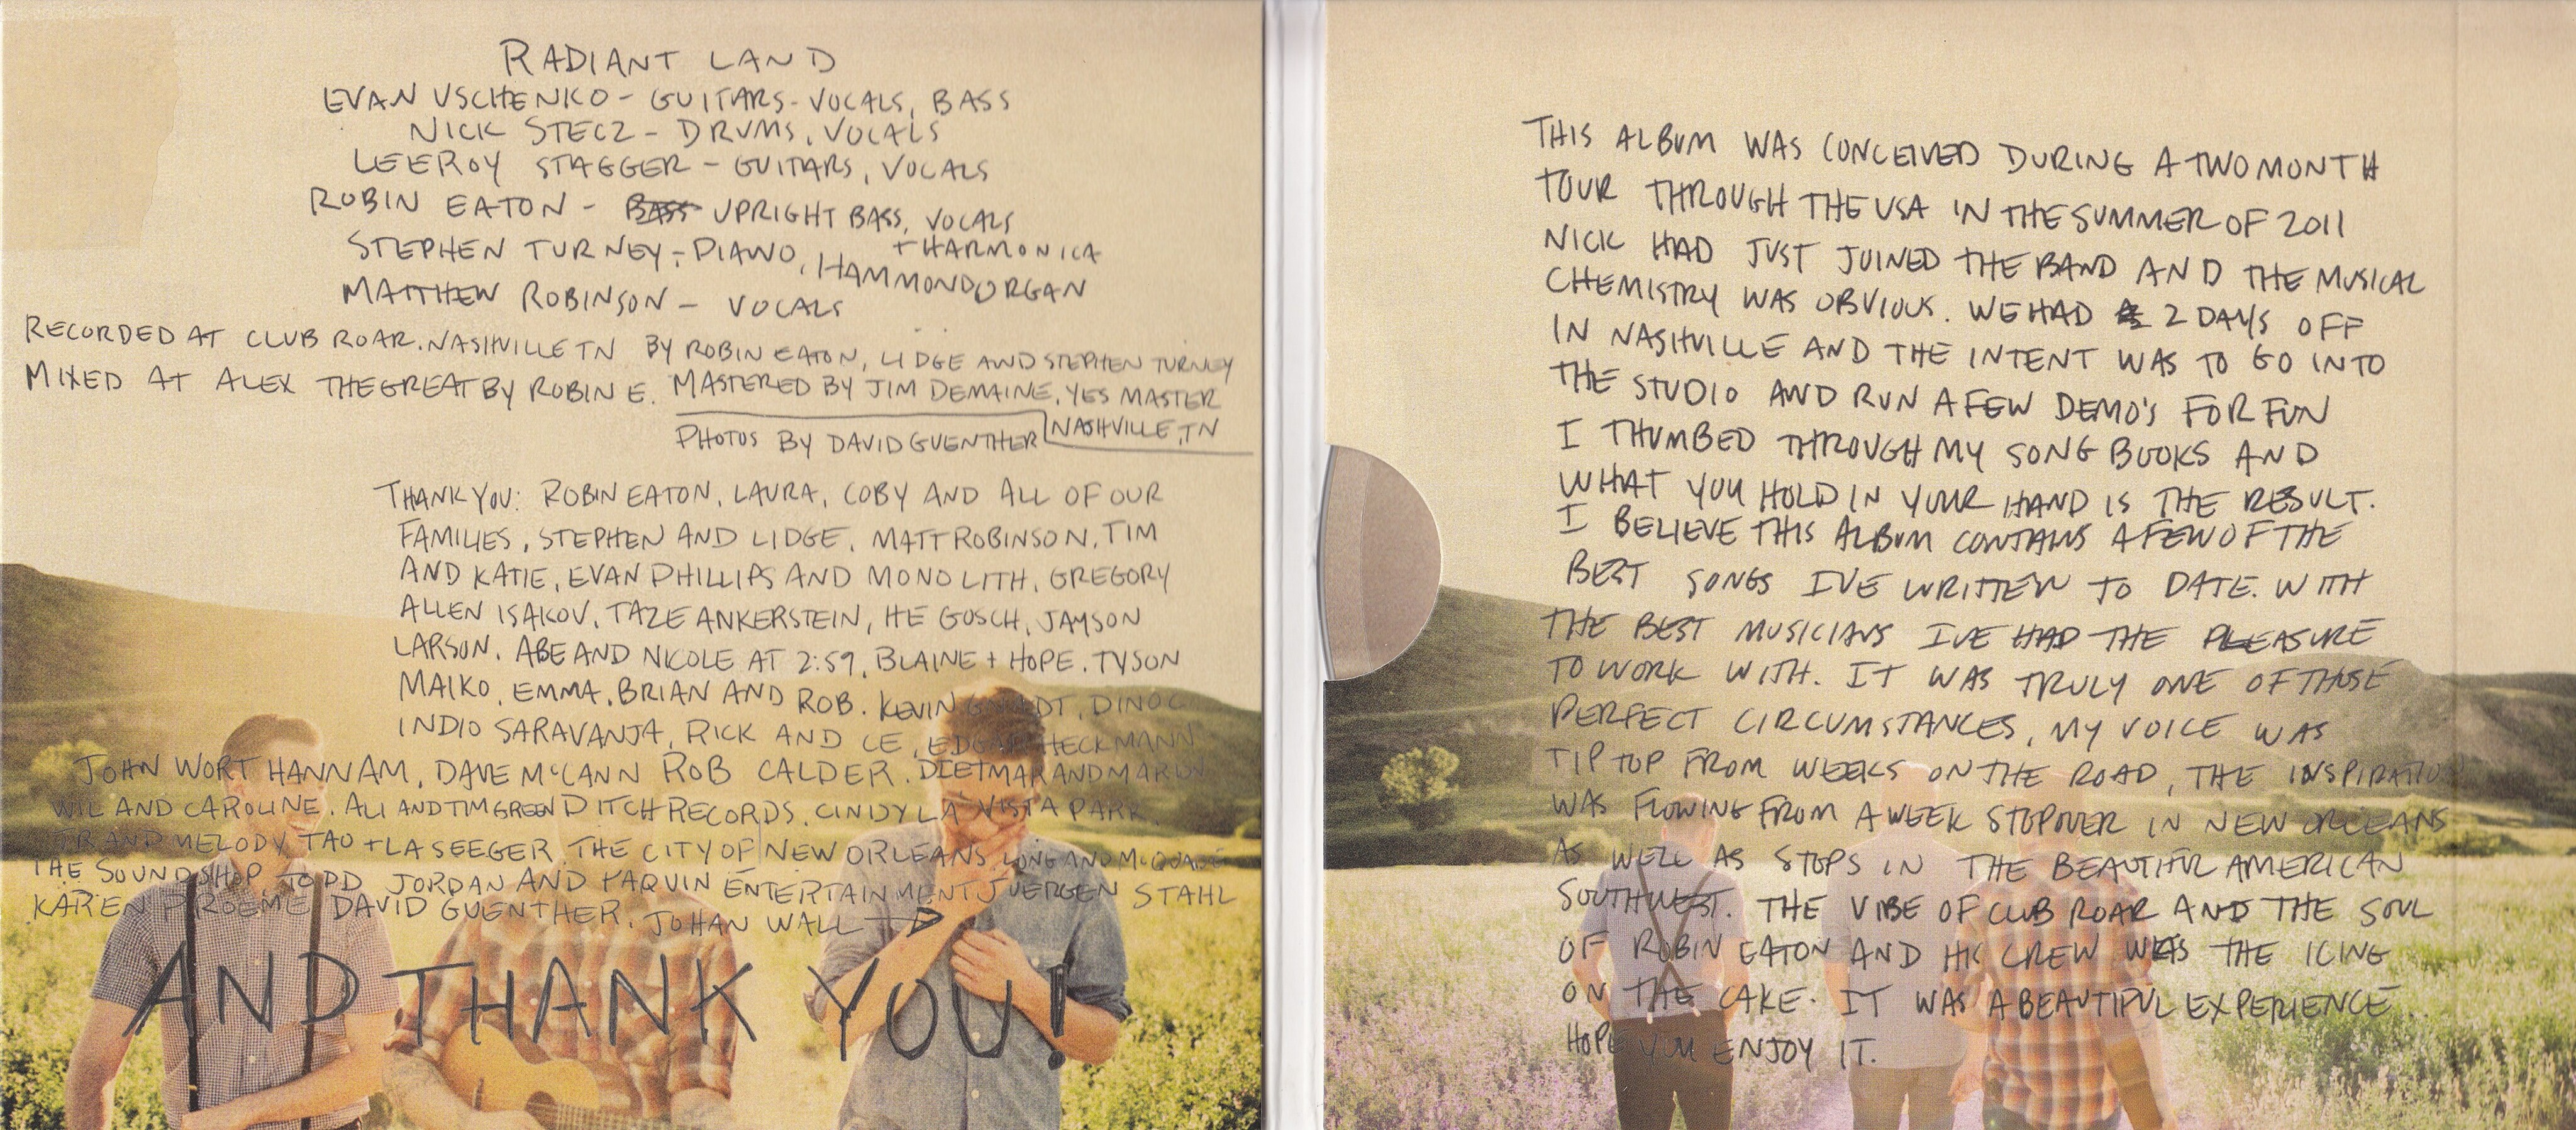 RADIANT LAND
EVAN USCHENKO - GUITARS - VOCALS, BASS
NICK STECZ - DRUMS, VOCALS
LEEROY STAGGER - GUITARS, VOCALS
ROBIN EATON - BASS UPRIGHT BASS, VOCALS
+ HARMONICA
STEPHEN TURNEY - PIANO, HAMMOND ORGAN
MATTHEW ROBINSON - VOCALS
RECORDED AT CLUB ROAR. NASHVILLE TN BY ROBIN EATON, LIDGE AND STEPHEN TURNEY
MIXED AT ALEX THE GREAT BY ROBIN E. MASTERED BY JIM DEMAINE, YES MASTER
NASHVILLE, TN
PHOTOS BY DAVID GUENTHER
THANK YOU: ROBIN EATON, LAURA, COBY AND ALL OF OUR
FAMILIES, STEPHEN AND LIDGE, MATT ROBINSON, TIM
AND KATIE, EVAN PHILLIPS AND MONOLITH, GREGORY
ALLEN ISAKOV, TAZE ANKERSTEIN, HE GOSCH, JAYSON
LARSON, ABE AND NICOLE AT 2:59, BLAINE + HOPE. TYSON
MAIKO, EMMA, BRIAN AND ROB. KEVIN DINO C
INDIO SARAVANJA, RICK AND CE, EDGAR HECKMANN
JOHN WORT HANNAM, DAVE McCANN ROB CALDER. DIETMAR AND
WIL AND CAROLINE. ALI AND TIM GREEN DITCH RECORDS. CINDY LA VISTA PARK
AND MELODY TAO + LA SEEGER THE CITY OF NEW ORLEANS, LONG AND McQUADE
THE SOUND SHOP TODD JORDAN AND PAQUIN ENTERTAINMENT JUERGEN STAHL
KAREN DAVID GUENTHER. JOHAN WALL
AND THANK YOU!
THIS ALBUM WAS CONCEIVED DURING A TWO MONTH
TOUR THROUGH THE USA IN THE SUMMER OF 2011
NICK HAD JUST JOINED THE BAND AND THE MUSICAL
CHEMISTRY WAS OBVIOUS. WE HAD 2 DAYS OFF
IN NASHVILLE AND THE INTENT WAS TO GO INTO
THE STUDIO AND RUN A FEW DEMO'S FOR FUN
I THUMBED THROUGH MY SONG BOOKS AND
WHAT YOU HOLD IN YOUR HAND IS THE RESULT.
I BELIEVE THIS ALBUM CONTAINS A FEW OF THE
BEST SONGS I'VE WRITTEN TO DATE. WITH
THE BEST MUSICIANS I'VE HAD THE PLEASURE
TO WORK WITH. IT WAS TRULY ONE OF THOSE
PERFECT CIRCUMSTANCES, MY VOICE WAS
TIP TOP FROM WEEKS ON THE ROAD, THE INSPIRATION
WAS FLOWING FROM A WEEK STOPOVER IN NEW ORLEANS
AS WELL AS STOPS IN THE BEAUTIFUL AMERICAN
SOUTHWEST. THE VIBE OF CLUB ROAR AND THE SOUL
OF ROBIN EATON AND HIS CREW WAS THE ICING
ON THE CAKE. IT WAS A BEAUTIFUL EXPERIENCE..
HOPE YOU ENJOY IT.